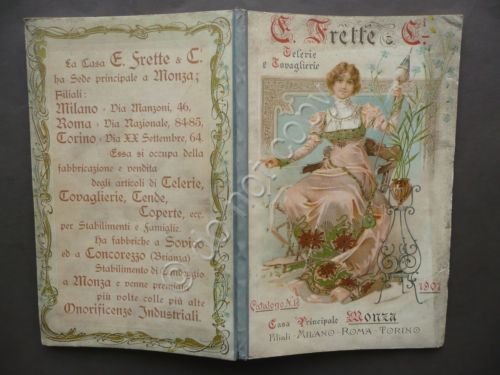 La Casa E. Frette & C.
ha Sede principale a Monza;
Filiali:
Milano - Via Manzoni, 46,
Roma - Via Nazionale, 84-85,
Torino - Via XX Settembre, 64
Essa si occupa della
fabbricazione e vendita
degli articoli di Telerie,
Tovaglierie, Tende,
Coperte, ecc.
per Stabilimenti e Famiglie.
Ha fabbriche a Sovico
ed a Concorezzo (Brianza)
Stabilimento di
a Monza e venne premiata
più volte colle più alte
Onorificenze Industriali.
E. Frette & C.i
Telerie
e Tovaglierie
1907
Catalogo N.
Casa Principale Monza
Filiali - MILANO - ROMA - TORINO